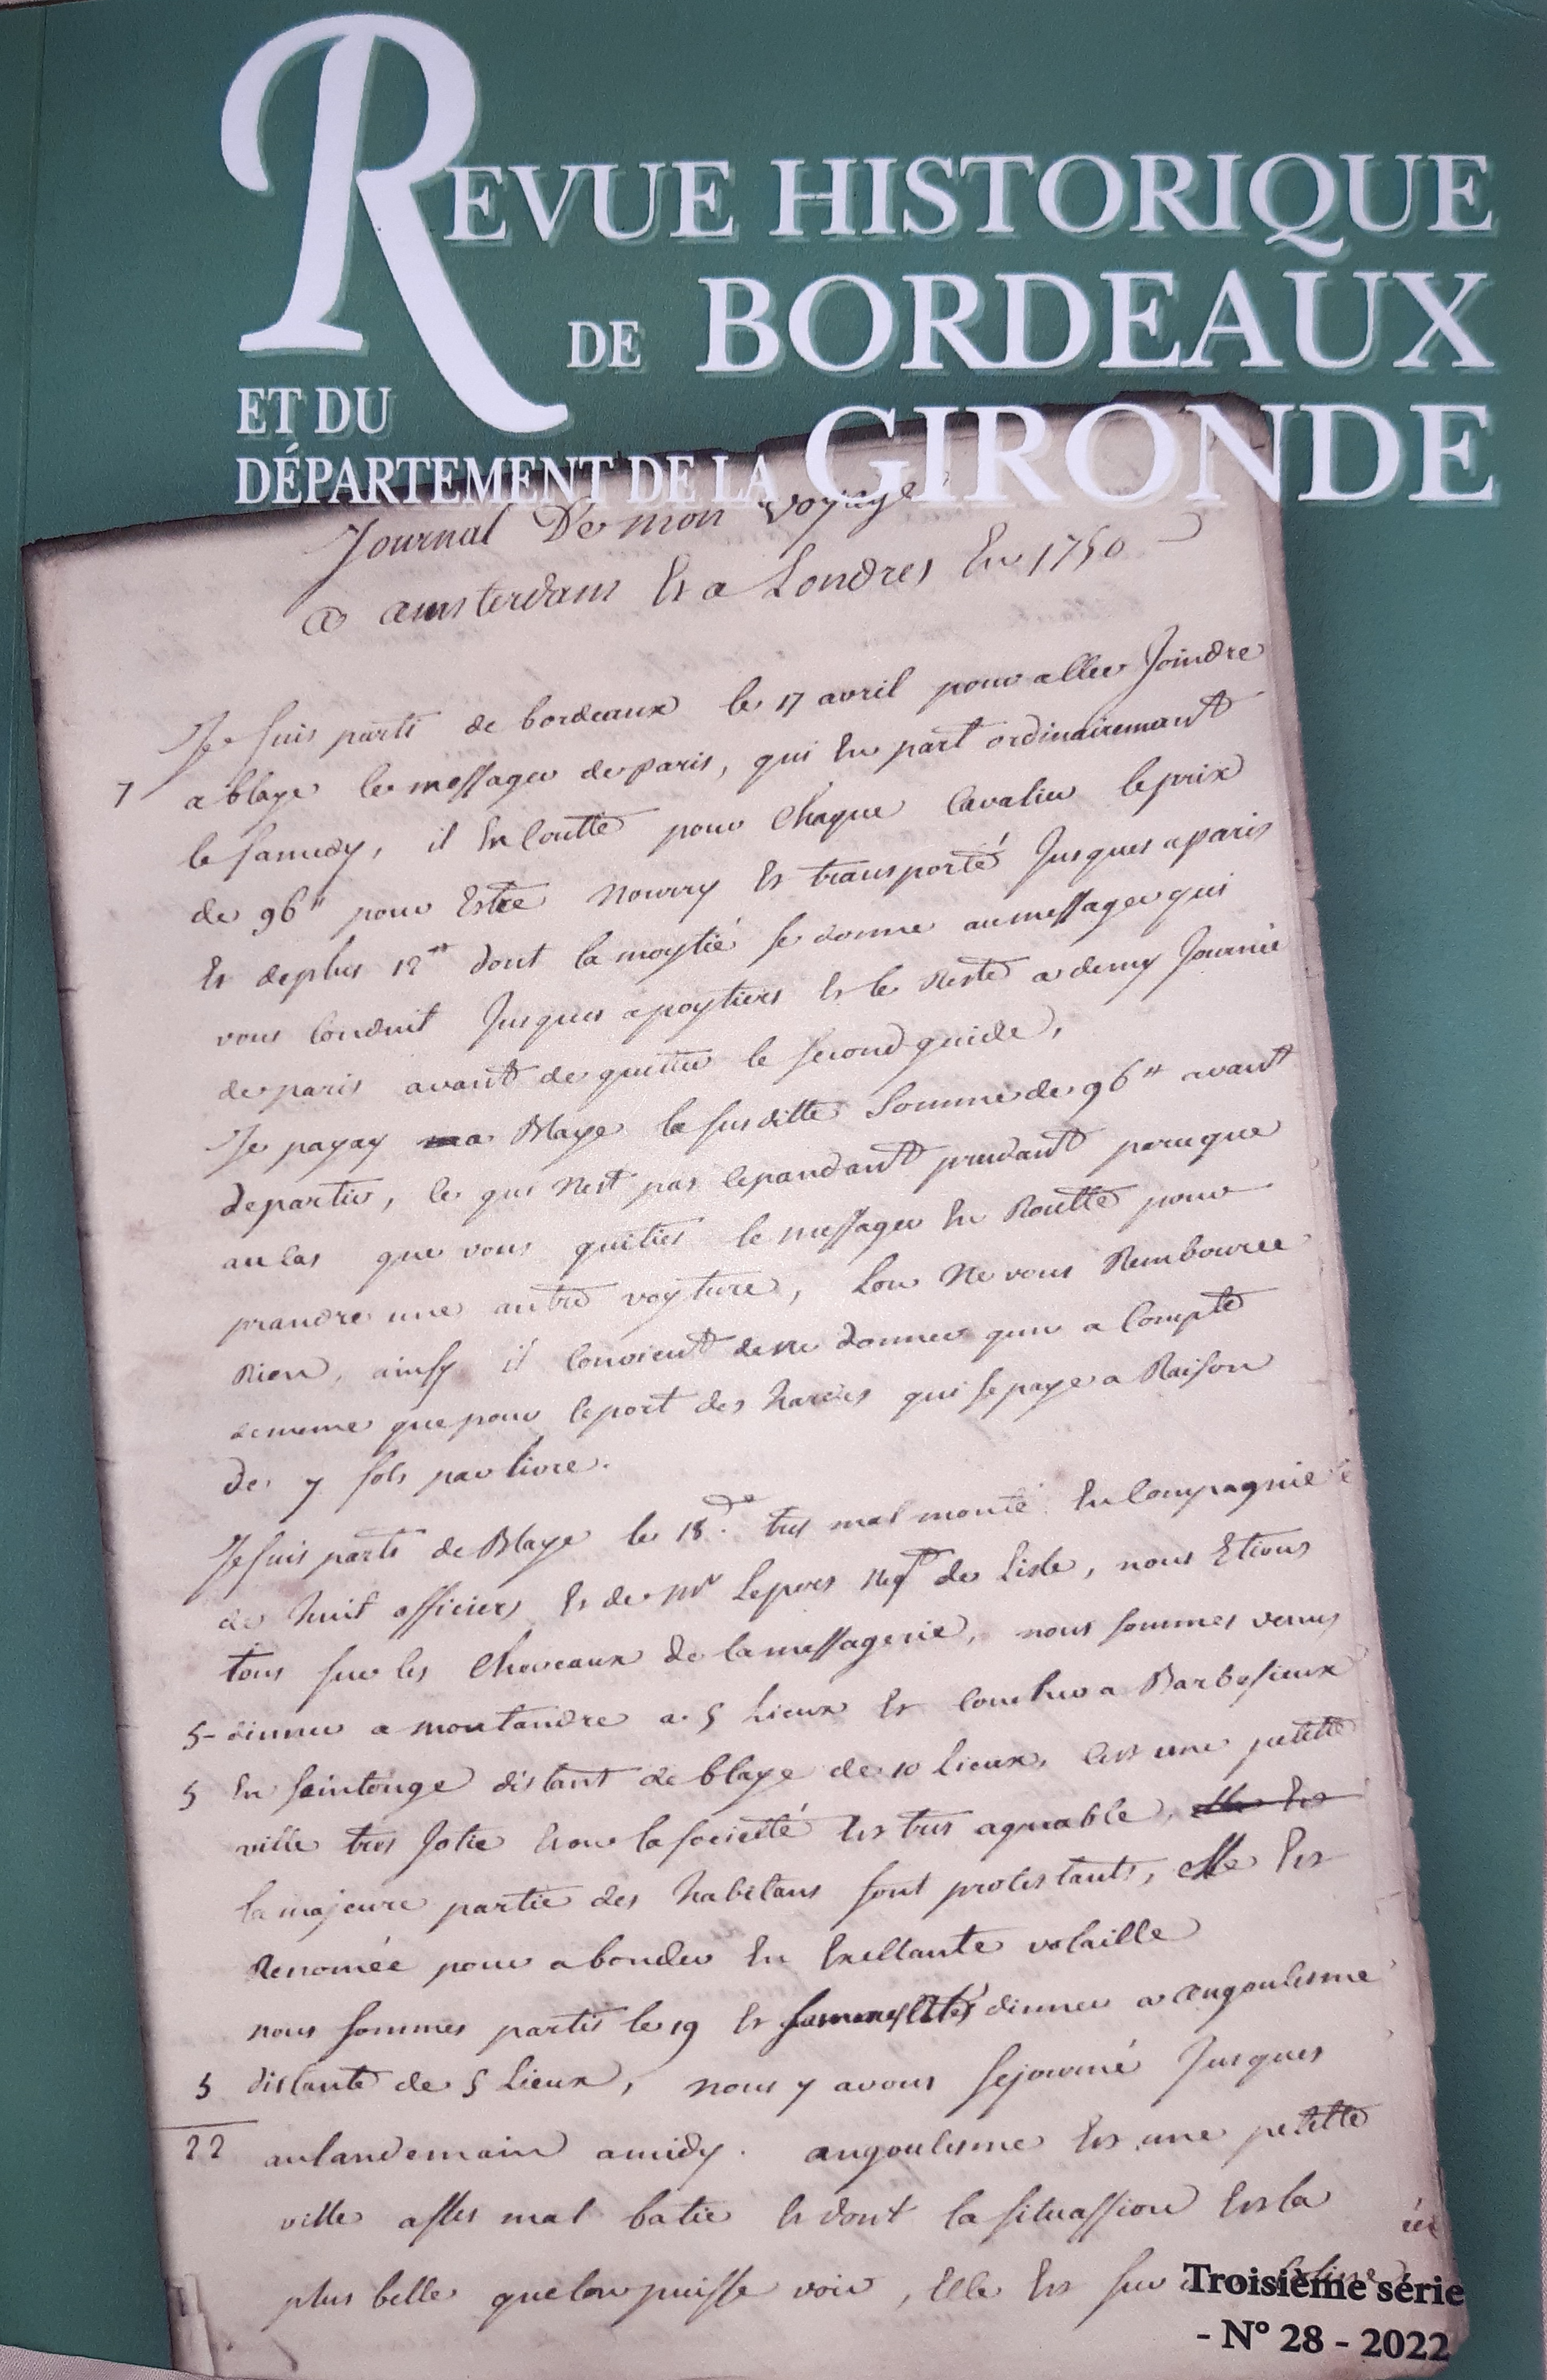 REVUE HISTORIQUE
DE BORDEAUX
ET DU
DÉPARTEMENT DE LA GIRONDE
Journal De mon voyage
a amsterdam Et a Londres En 1750
Je suis parti de bordeaux le 17 avril pour aller Joindre
7 a blaye le messager de paris, qui En part ordinairemant
le samedy, il En coutte pour Chaque Cavalier le prix
de 96tt pour Estre Nourry Et transporté Jusques a paris
Et de plus 12tt dont la moytié se donne au messager qui
vous Conduit Jusques a poytiers Et le Reste a demy Journée
de paris avant de quitter le second guide,
Je payay a Blaye la susditte Somme de 96tt avant
de partir, ce qui n'est pas cepandant prudant parceque
au cas que vous quitiés le messager En Routte pour
prandre une autre voyture, Lon Ne vous Rembource
Rien, ainsy il convient de ne donner qun a Compte
de meme que pour le port des hardes qui se paye a Raison
de 7 sols par livre.
Je suis parti de Blaye le 18.de tres mal monté En Compagnie
de huit officiers Et de Mr Lepers Negt de Lisle, nous Etions
tous sur les Chevaux de la messagerie, nous sommes venus
5- dinner a montandre a 5 Lieux Et coucher a Barbesieux
5 En saintonge distant de blaye de 10 Lieux, cest une petitte
ville tres Jolie Et ou la societté Est tres agreable, elle Est
la majeure partie des habitans sont protestants, elle Est
Renomée pour abonder En Exellante volaille
nous sommes partis le 19 Et sommes allés dinner a angoulesme
5 distante de 5 Lieux, nous y avons sejourné Jusques
22 au landemain a midy. angoulesme Est une petitte
ville asses mal batie Et dont la situassion Est la
plus belle que lon puisse voir, Elle Est sur
Troisième série
- N° 28 - 2022